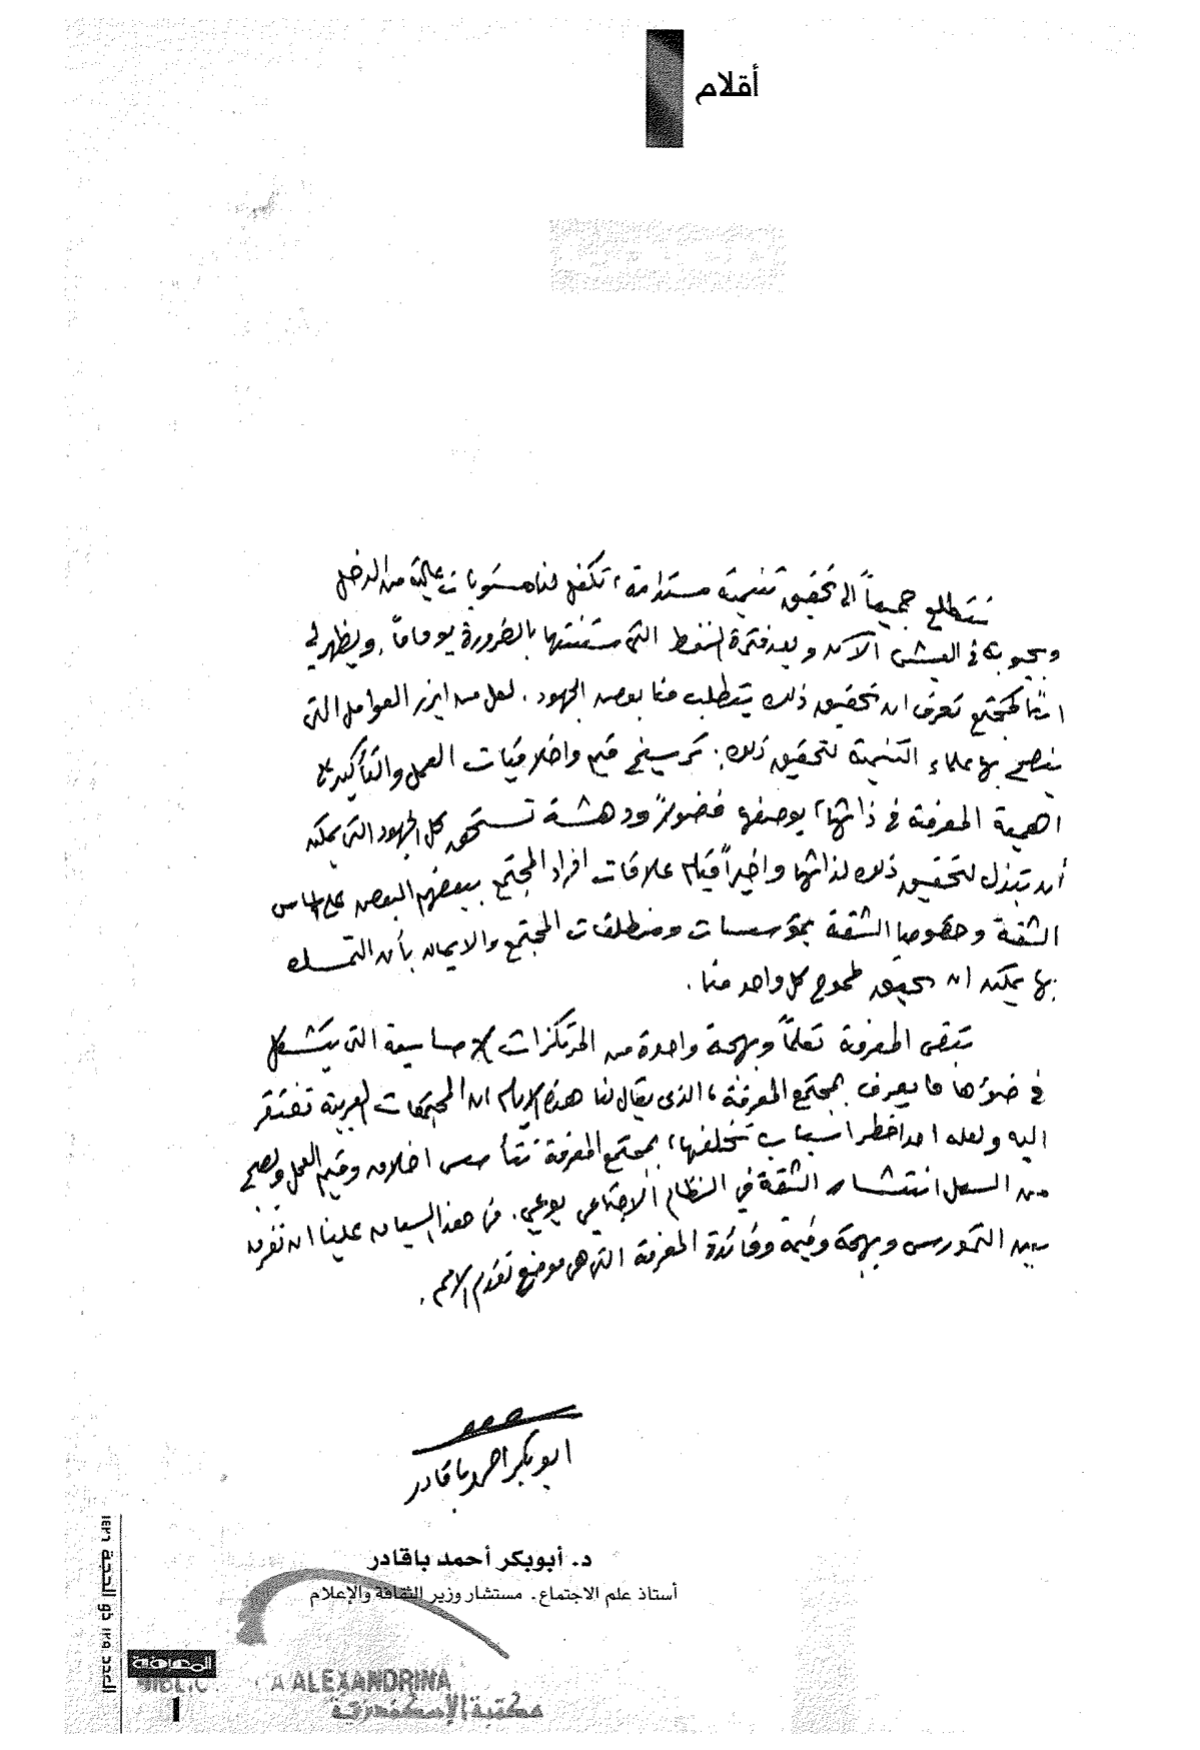 أقلام
نتطلع جميعاً الى تحقيق تنمية مستدامة، تكفل لنا مستويات عالية من الدخل
وبحبوحة في العيش الآن وبعد فترة النفط التي ستنتهي بالضرورة يوماً ما، ويظهر لي
اننا كمجتمع نعرف ان تحقيق ذلك يتطلب منا بعض الجهود. لعل من ابرز العوامل التي
ينصح بها علماء التنمية لتحقيق ذلك: ترسيخ قيم واخلاقيات العمل والتأكيد على
اهمية المعرفة في ذاتها، بوصفها فضولاً ودهشة تستحق كل الجهود التي يمكن
أن تبذل لتحقيق ذلك لذاتها واخيراً قيام علاقات افراد المجتمع ببعضهم البعض على اساس
الثقة وخصوصا الثقة بمؤسسات ومنطلقات المجتمع والايمان بأن التمسك
بها يمكن ان يحقق طموح كل واحد منا.
تبقى المعرفة تعلماً وبهجة واحدة من المرتكزات الاساسية التي يتشكل
في ضوئها ما يعرف بمجتمع المعرفة، الذي يقال لنا هذه الايام ان المجتمعات العربية تفتقر
اليه ولعله احد اخطر اسباب تخلفها، بمجتمع المعرفة تتأسس اخلاق وقيم العمل ويصبح
من السهل انتشار الثقة في النظام الاجتماعي بوعي. في هذا السياق علينا ان نفرق
بين التمدرس وبهجة وقيمة وفائدة المعرفة التي هي موضع تقدم الامم.
ابوبكر احمد باقادر
د. أبوبكر أحمد باقادر
أستاذ علم الاجتماع. مستشار وزير الثقافة والإعلام
العدد ١٢٩ ذو الحجة ١٤٢٦
المعرفة
A ALEXANDRINA
مكتبة الإسكندرية
1